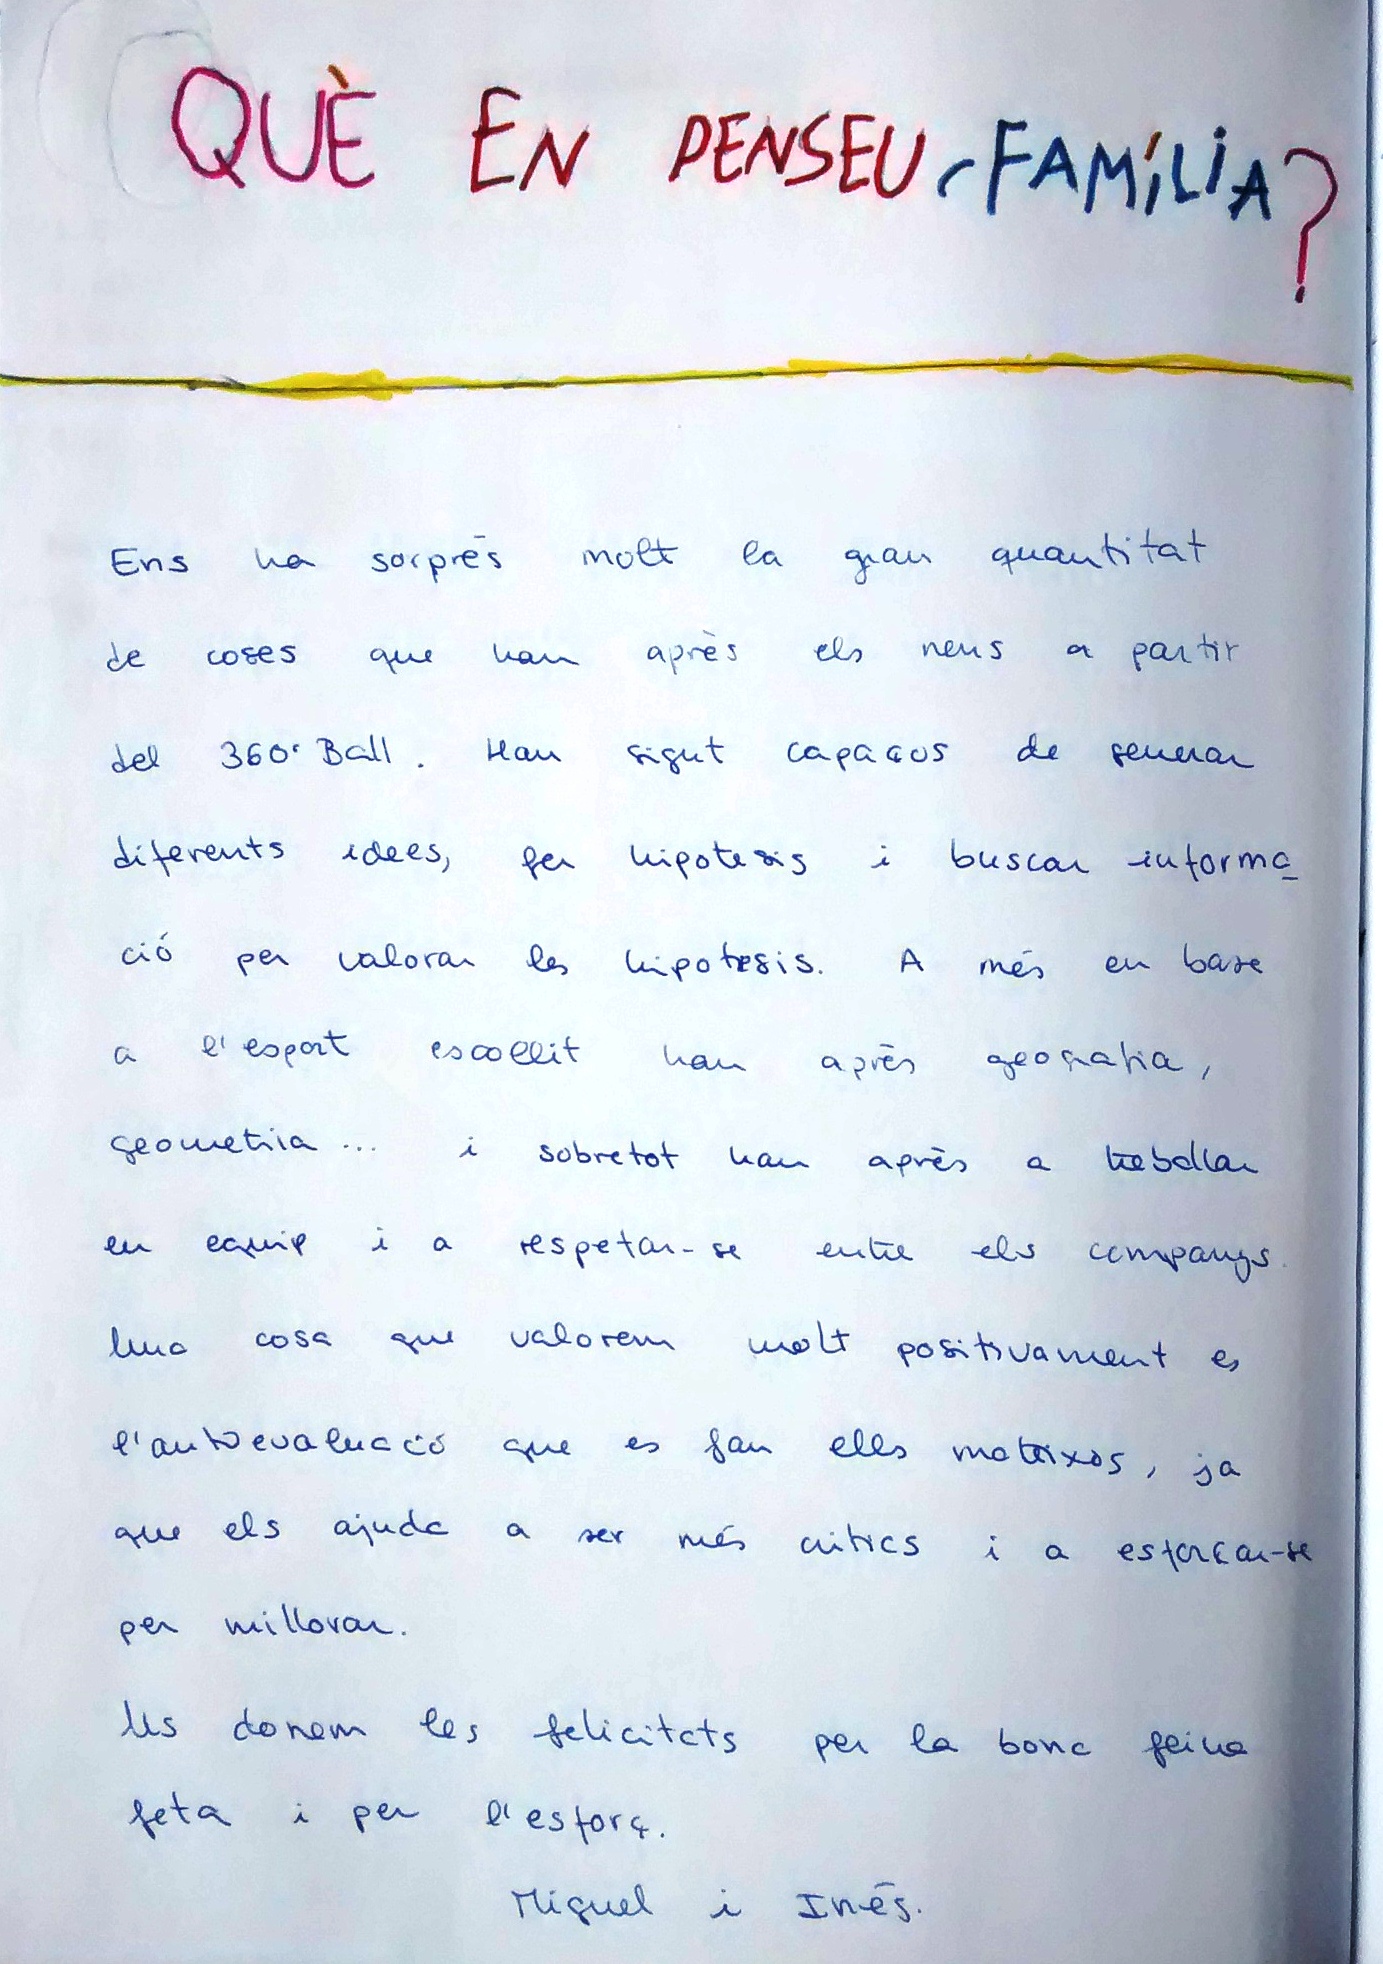 QUÈ EN PENSEU, FAMÍLIA?
Ens ha sorprès molt la gran quantitat
de coses que han après els nens a partir
del 360º Ball. Han sigut capaços de generar
diferents idees, fer hipotesis i buscar informa
ció per valorar les hipotesis. A més en base
a l'esport escollit han après geografia,
geometria... i sobretot han après a treballar
en equip i a respetar-se entre els companys.
Una cosa que valorem molt positivament es
l'autoevaluació que es fan ells mateixos, ja
que els ajuda a ser més crítics i a esforçar-se
per millorar.
Us donem les felicitats per la bona feina
feta i per l'esforç.
Miguel i Inés.